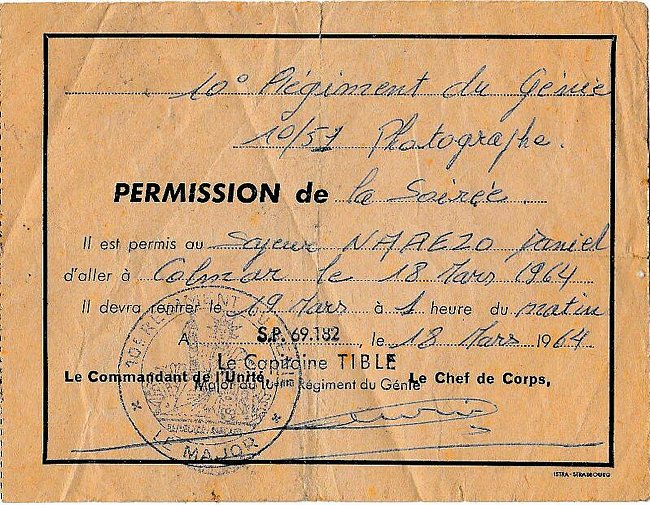 10° Régiment du Génie
10/57 Photographe.
PERMISSION de la Soirée
Il est permis au Sapeur NAREZO Daniel
d'aller à Colmar le 18 Mars 1964
Il devra rentrer le 19 Mars à 1 heure du matin
A S.P. 69.182, le 18 Mars 1964
Le Capitaine TIBLE
Le Commandant de l'Unité, Le Chef de Corps,
Major du 10ème Régiment du Génie
REGIMENT
LE MAJOR
ISTRA-STRASBOURG